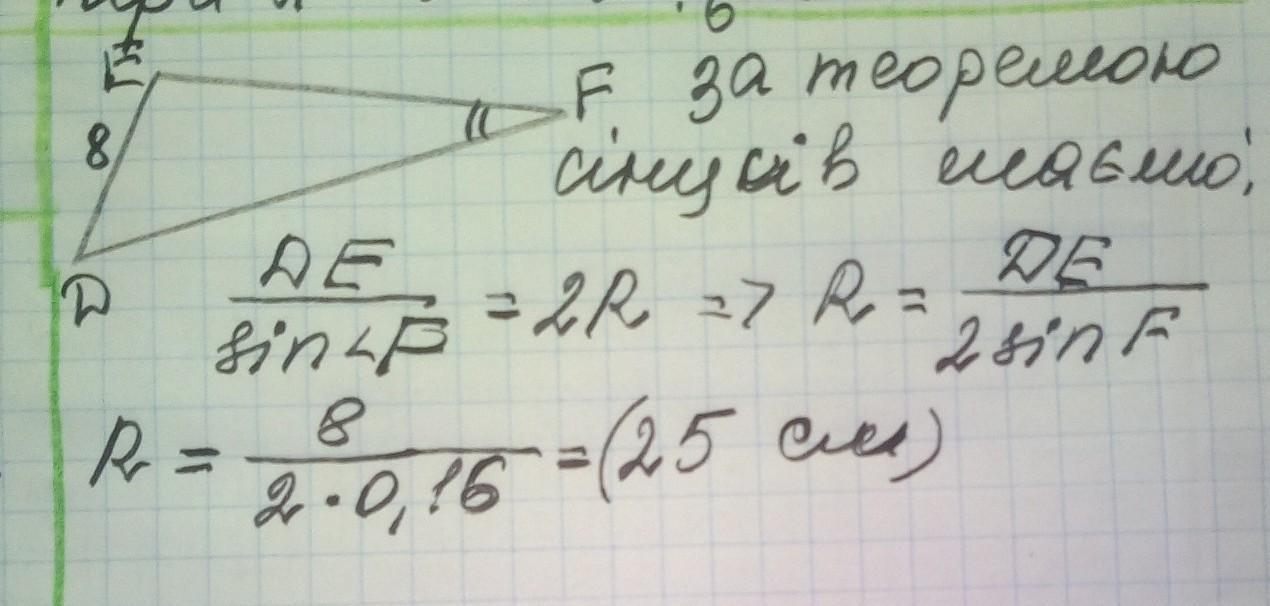 6
E
8
F За теоремою
синусів маємо:
D
DE / sin∠F = 2R => R = DE / 2sinF
R = 8 / 2·0,16 = (25 см)